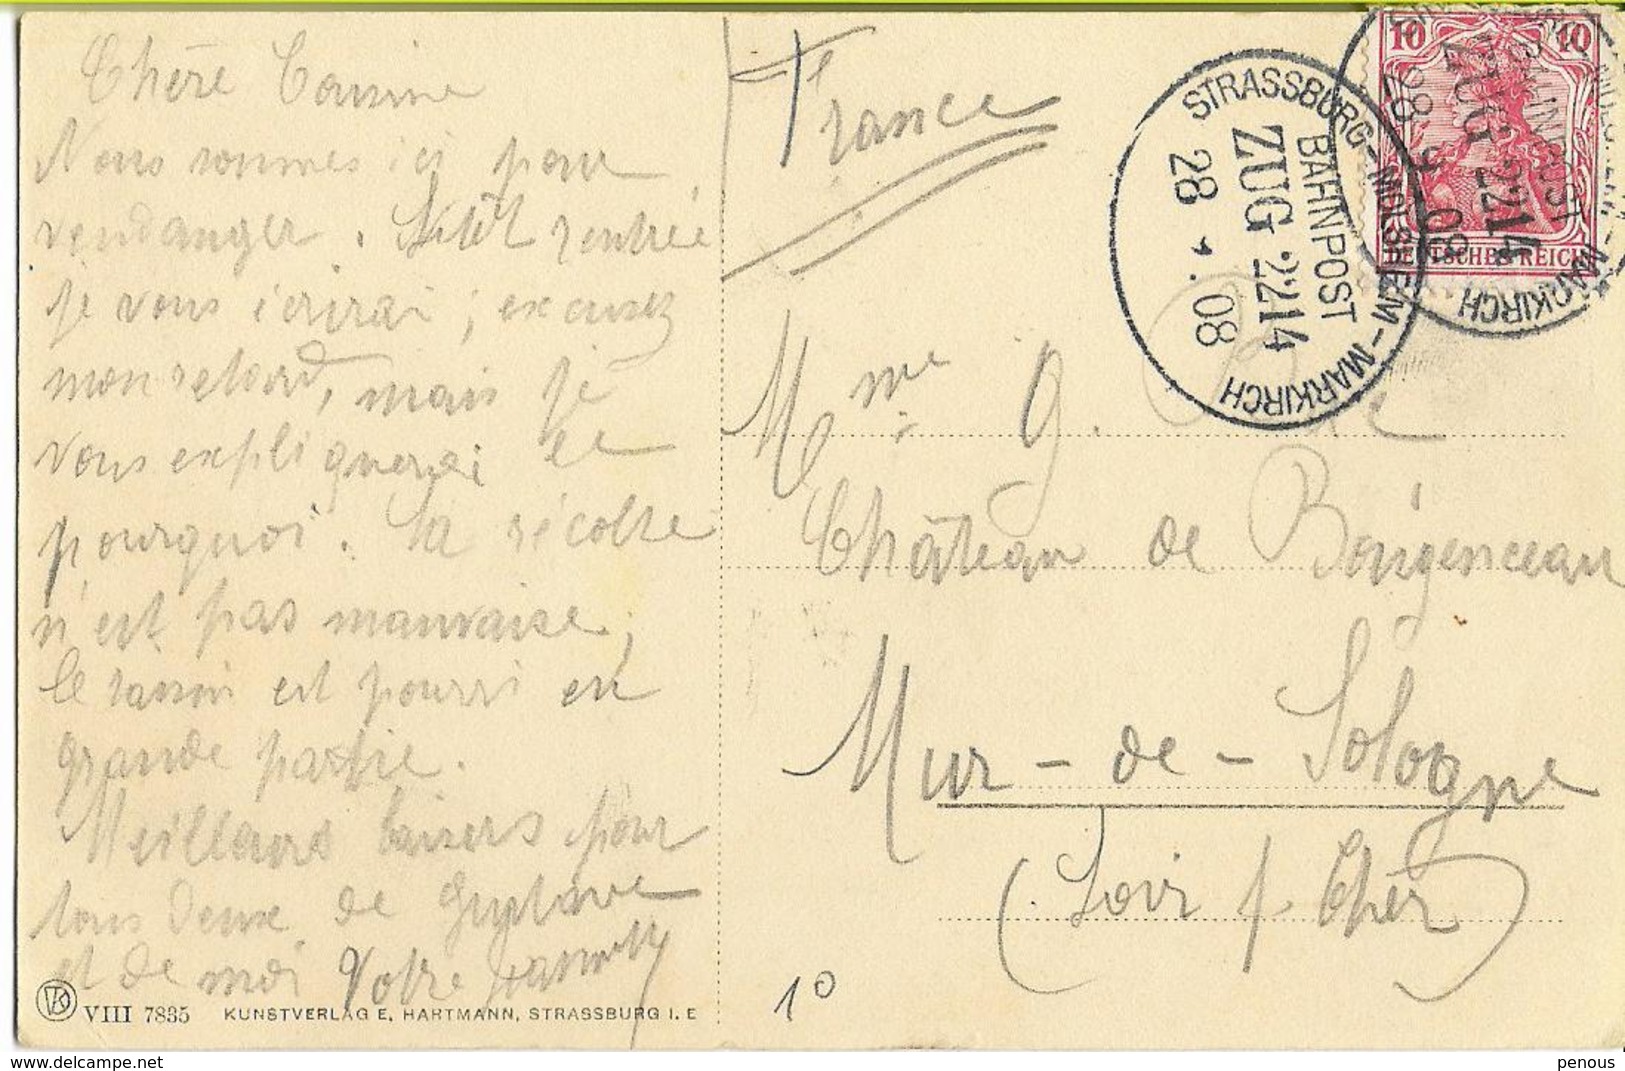 Chère Cousine
Nous sommes ici pour
vendanger. Sitôt rentrée
je vous écrirai; excusez
mon retard, mais je
vous expliquerai le
pourquoi. La récolte
n'est pas mauvaise;
le raisin est pourri en
grande partie.
Meilleurs baisers pour
tous deux de Gustave
et de moi Votre
VIII 7835 KUNSTVERLAG E. HARTMANN, STRASSBURG I. E
France
STRASSBURG - MOLSHEIM - MARKIRCH
BAHNPOST
ZUG 2214
28 . . 08
10 10
DEUTSCHES REICH
BAHNPOST
ZUG 2214
28 9 08
MARKIRCH
Mme G.
Château de
Mur-de-Sologne
(Loir & Cher)
1º
penous